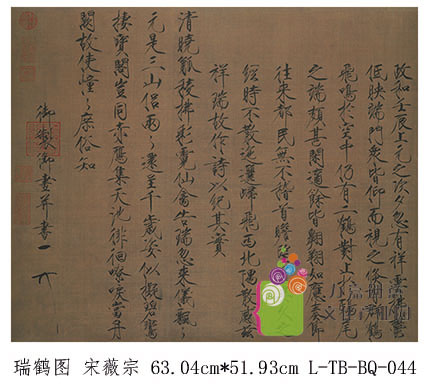 政和壬辰上元之次夕忽有祥雲拂鬱
低映端門眾皆仰而視之倏有群鶴
飛鳴於空中仍有二鶴對止於鴟尾
之端頗甚閑適餘皆翱翔如應奏節
往來都民無不稽首瞻
經時不散迤邐歸飛西北隅散感茲
祥瑞故作詩以紀其實
清曉觚稜拂彩霓仙禽告瑞忽來儀飄々
元是三山侶兩々還呈千歲姿似擬碧鸞
棲寶閣豈同赤鴈集天池徘徊嘹唳當丹
闕故使憧々庶俗知
御製御畫并書
瑞鹤图 宋薇宗 63.04cm*51.93cm L-TB-BQ-044